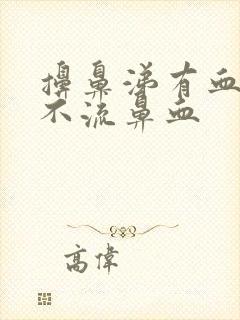 擤鼻涕有血
不流鼻血
高偉